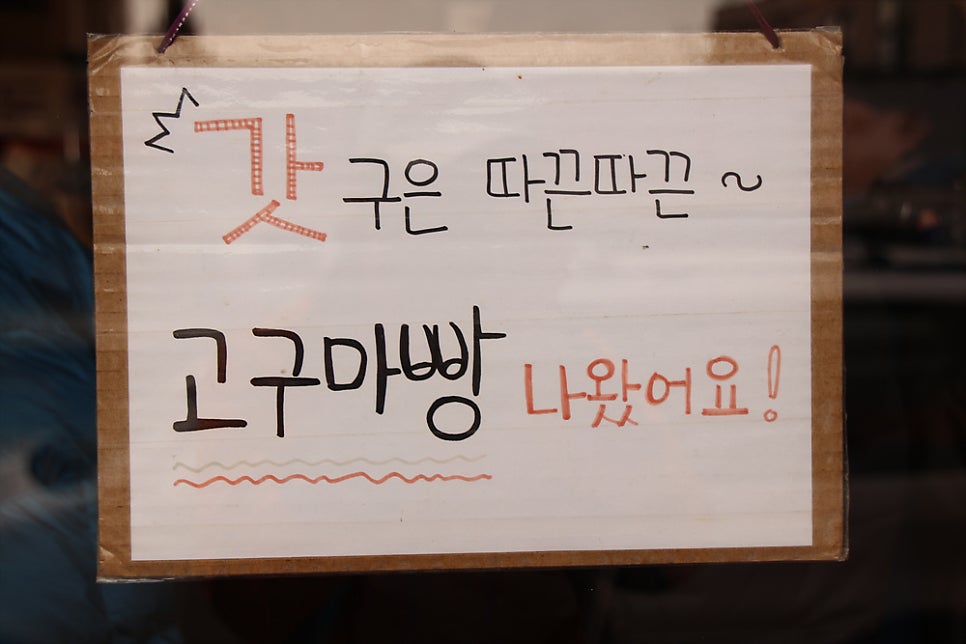 갓 구은 따끈따끈 ~
고구마빵 나왔어요!